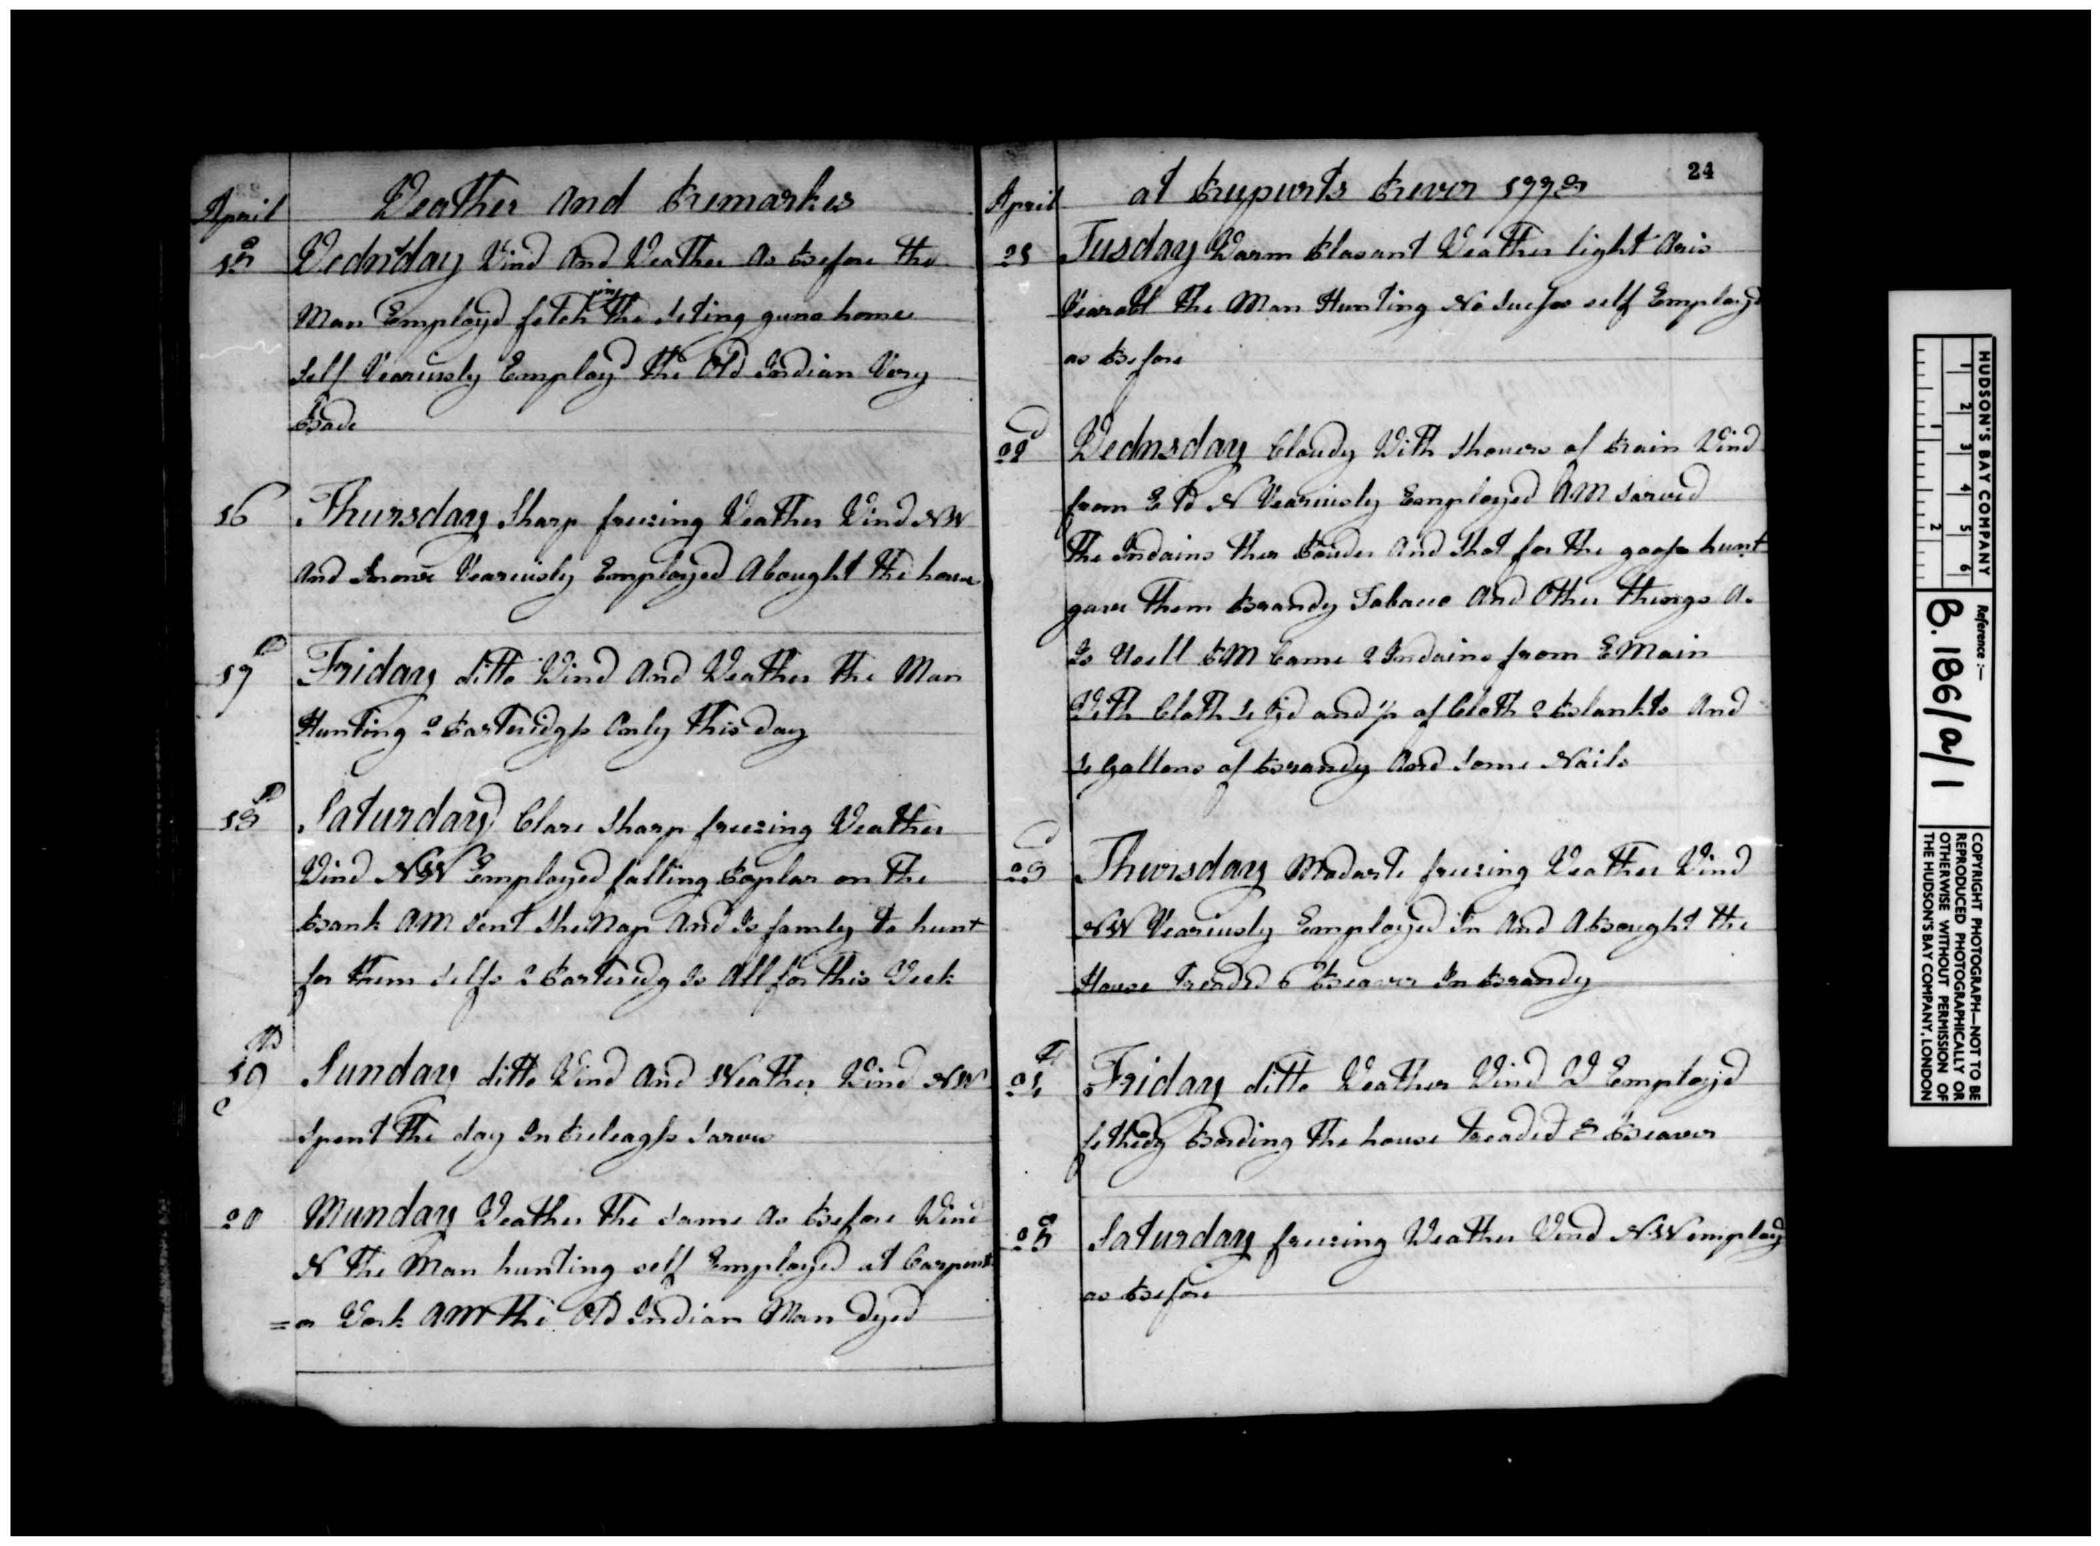 April Weather and Remarkes
15 Wednsday Wind And Weather As Before the
Man Employd fetching the Seting guns home
Self Veariusly Employd the Old Indian Very
Bade
16 Thursday Sharp freezing Weather Wind NW
And Snowe Veariusly Employed Abought the house
17 Friday ditto Wind And Weather the Man
Hunting 2 Parteridgs Only this day
18 Saturday Clare Sharp freezing Weather
Wind NW Employed falling Poplar on the
Bank AM Sent SheNap And Is famly to hunt
for them Selfs 2 Parteridg Is All for this Week
19 Sunday ditto Wind And Weather Wind NW
Spent the day In Releagss Sarves
20 Munday Weather the Same As Before Wind
N the Man hunting self Employed at Carpent
=er Work AM the Old Indian Man dyed
24
April at Rupurts Rever 1778
21 Tusday Warm Plasant Weather light Airs
Vearabl the Man Hunting No Sucses self Employd
as Before
22d Wednsday Cloudy With Showers of Rain Wind
from E to N Veariusly Employed AM Sarved
the Indains ther Pouder And Shot for the goose hunt
gave them Brandy Tobacco And Other things As
Is Usell PM Came 2 Indains from EMain
With Cloth 4 yd and 1/2 of Cloth 2 Blankts And
4 gallons of Brandy And Some Nails
23d Thursday Modarte freezing Weather Wind
NW Veariusly Employed In And Abought the
House Treaded 6 Beaver In Brandy
24 Friday ditto Weather Wind W Employd
Boarding the house treaded 8 Beaver
25 Saturday freezing Weather Wind NW employd
as Before
HUDSON'S BAY COMPANY
1 2 3 4 5 6
1 2
Reference :—
B.186/a/1
COPYRIGHT PHOTOGRAPH—NOT TO BE
REPRODUCED PHOTOGRAPHICALLY OR
OTHERWISE WITHOUT PERMISSION OF
THE HUDSON'S BAY COMPANY, LONDON